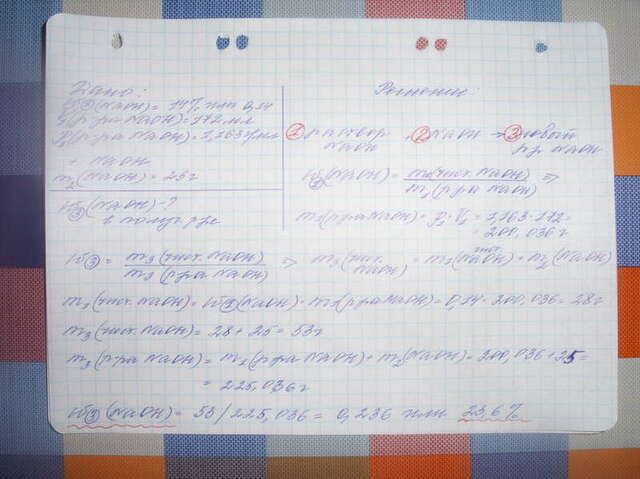 Дано:
W①(NaOH) = 14% или 0,14
V₁(р-ра NaOH) = 172 мл
ρ₁(р-ра NaOH) = 1,163 г/мл
+ NaOH
m₂(NaOH) = 25 г
W③(NaOH) - ?
в получ р-ре
Решение:
① раствор NaOH + ② NaOH → ③ новый р-р NaOH
W①(NaOH) = m₁(чист. NaOH) / m₁(р-ра NaOH) ⇒
m₁(р-ра NaOH) = ρ₁·V₁ = 1,163·172 =
= 200,036 г
W③ = m₃(чист. NaOH) / m₃(р-ра NaOH) ⇒ m₃(чист. NaOH) = m₁(чист. NaOH) + m₂(NaOH)
m₁(чист. NaOH) = W①(NaOH) · m₁(р-ра NaOH) = 0,14 · 200,036 = 28 г
m₃(чист. NaOH) = 28 + 25 = 53 г
m₃(р-ра NaOH) = m₁(р-ра NaOH) + m₂(NaOH) = 200,036 + 25 =
= 225,036 г
W③(NaOH) = 53/225,036 = 0,236 или 23,6%